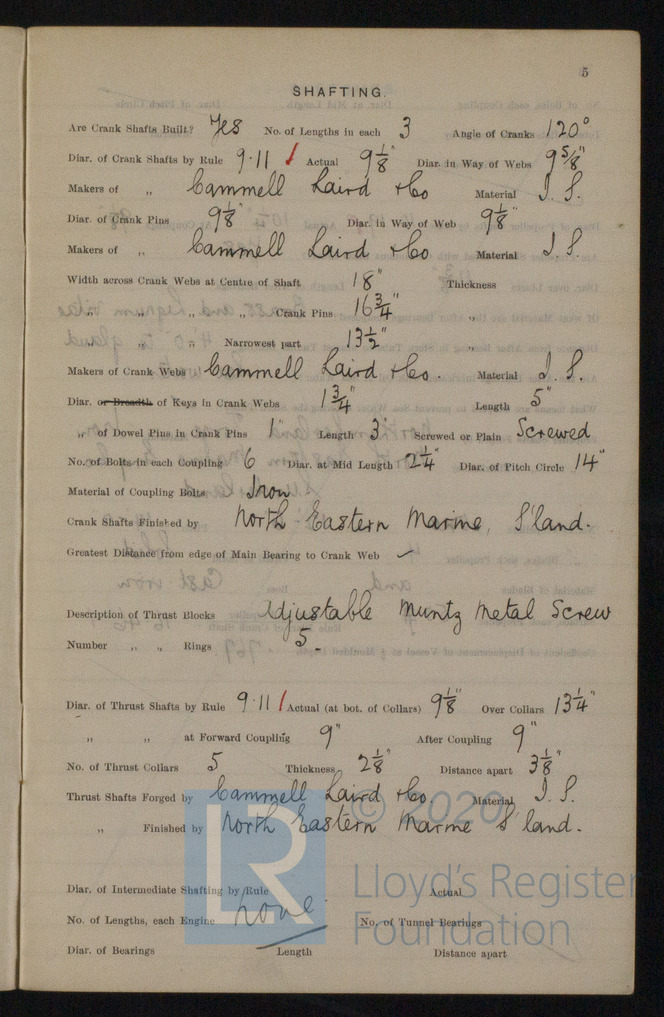 5
SHAFTING.
Are Crank Shafts Built? Yes No. of Lengths in each 3 Angle of Cranks 120°
Diar. of Crank Shafts by Rule 9.11 Actual 9 1/8" Diar. in Way of Webs 9 5/8"
Makers of „ Cammell Laird & Co Material I. S.
Diar. of Crank Pins 9 1/8" Diar. in Way of Web 9 1/8"
Makers of „ Cammell Laird & Co Material I. S.
Width across Crank Webs at Centre of Shaft 18" Thickness
„ „ „ „ Crank Pins 16 3/4" „
„ „ „ Narrowest part 13 1/2" „
Makers of Crank Webs Cammell Laird & Co. Material I. S.
Diar. or Breadth of Keys in Crank Webs 1 3/4" Length 5"
„ of Dowel Pins in Crank Pins 1" Length 3" Screwed or Plain Screwed
No. of Bolts in each Coupling 6 Diar. at Mid Length 2 1/4" Diar. of Pitch Circle 14"
Material of Coupling Bolts Iron
Crank Shafts Finished by North Eastern Marine, S'land.
Greatest Distance from edge of Main Bearing to Crank Web ✓
Description of Thrust Blocks Adjustable Muntz Metal Screw
Number „ „ Rings 5.
Diar. of Thrust Shafts by Rule 9.11 Actual (at bot. of Collars) 9 1/8" Over Collars 13 1/4"
„ „ at Forward Coupling 9" After Coupling 9"
No. of Thrust Collars 5 Thickness 2 1/8" Distance apart 3 1/8"
Thrust Shafts Forged by Cammell Laird & Co. Material I. S.
„ Finished by North Eastern Marine S'land.
Diar. of Intermediate Shafting by Rule Actual
No. of Lengths, each Engine none. No. of Tunnel Bearings
Diar. of Bearings Length Distance apart
LR © 2020
Lloyd's Register
Foundation